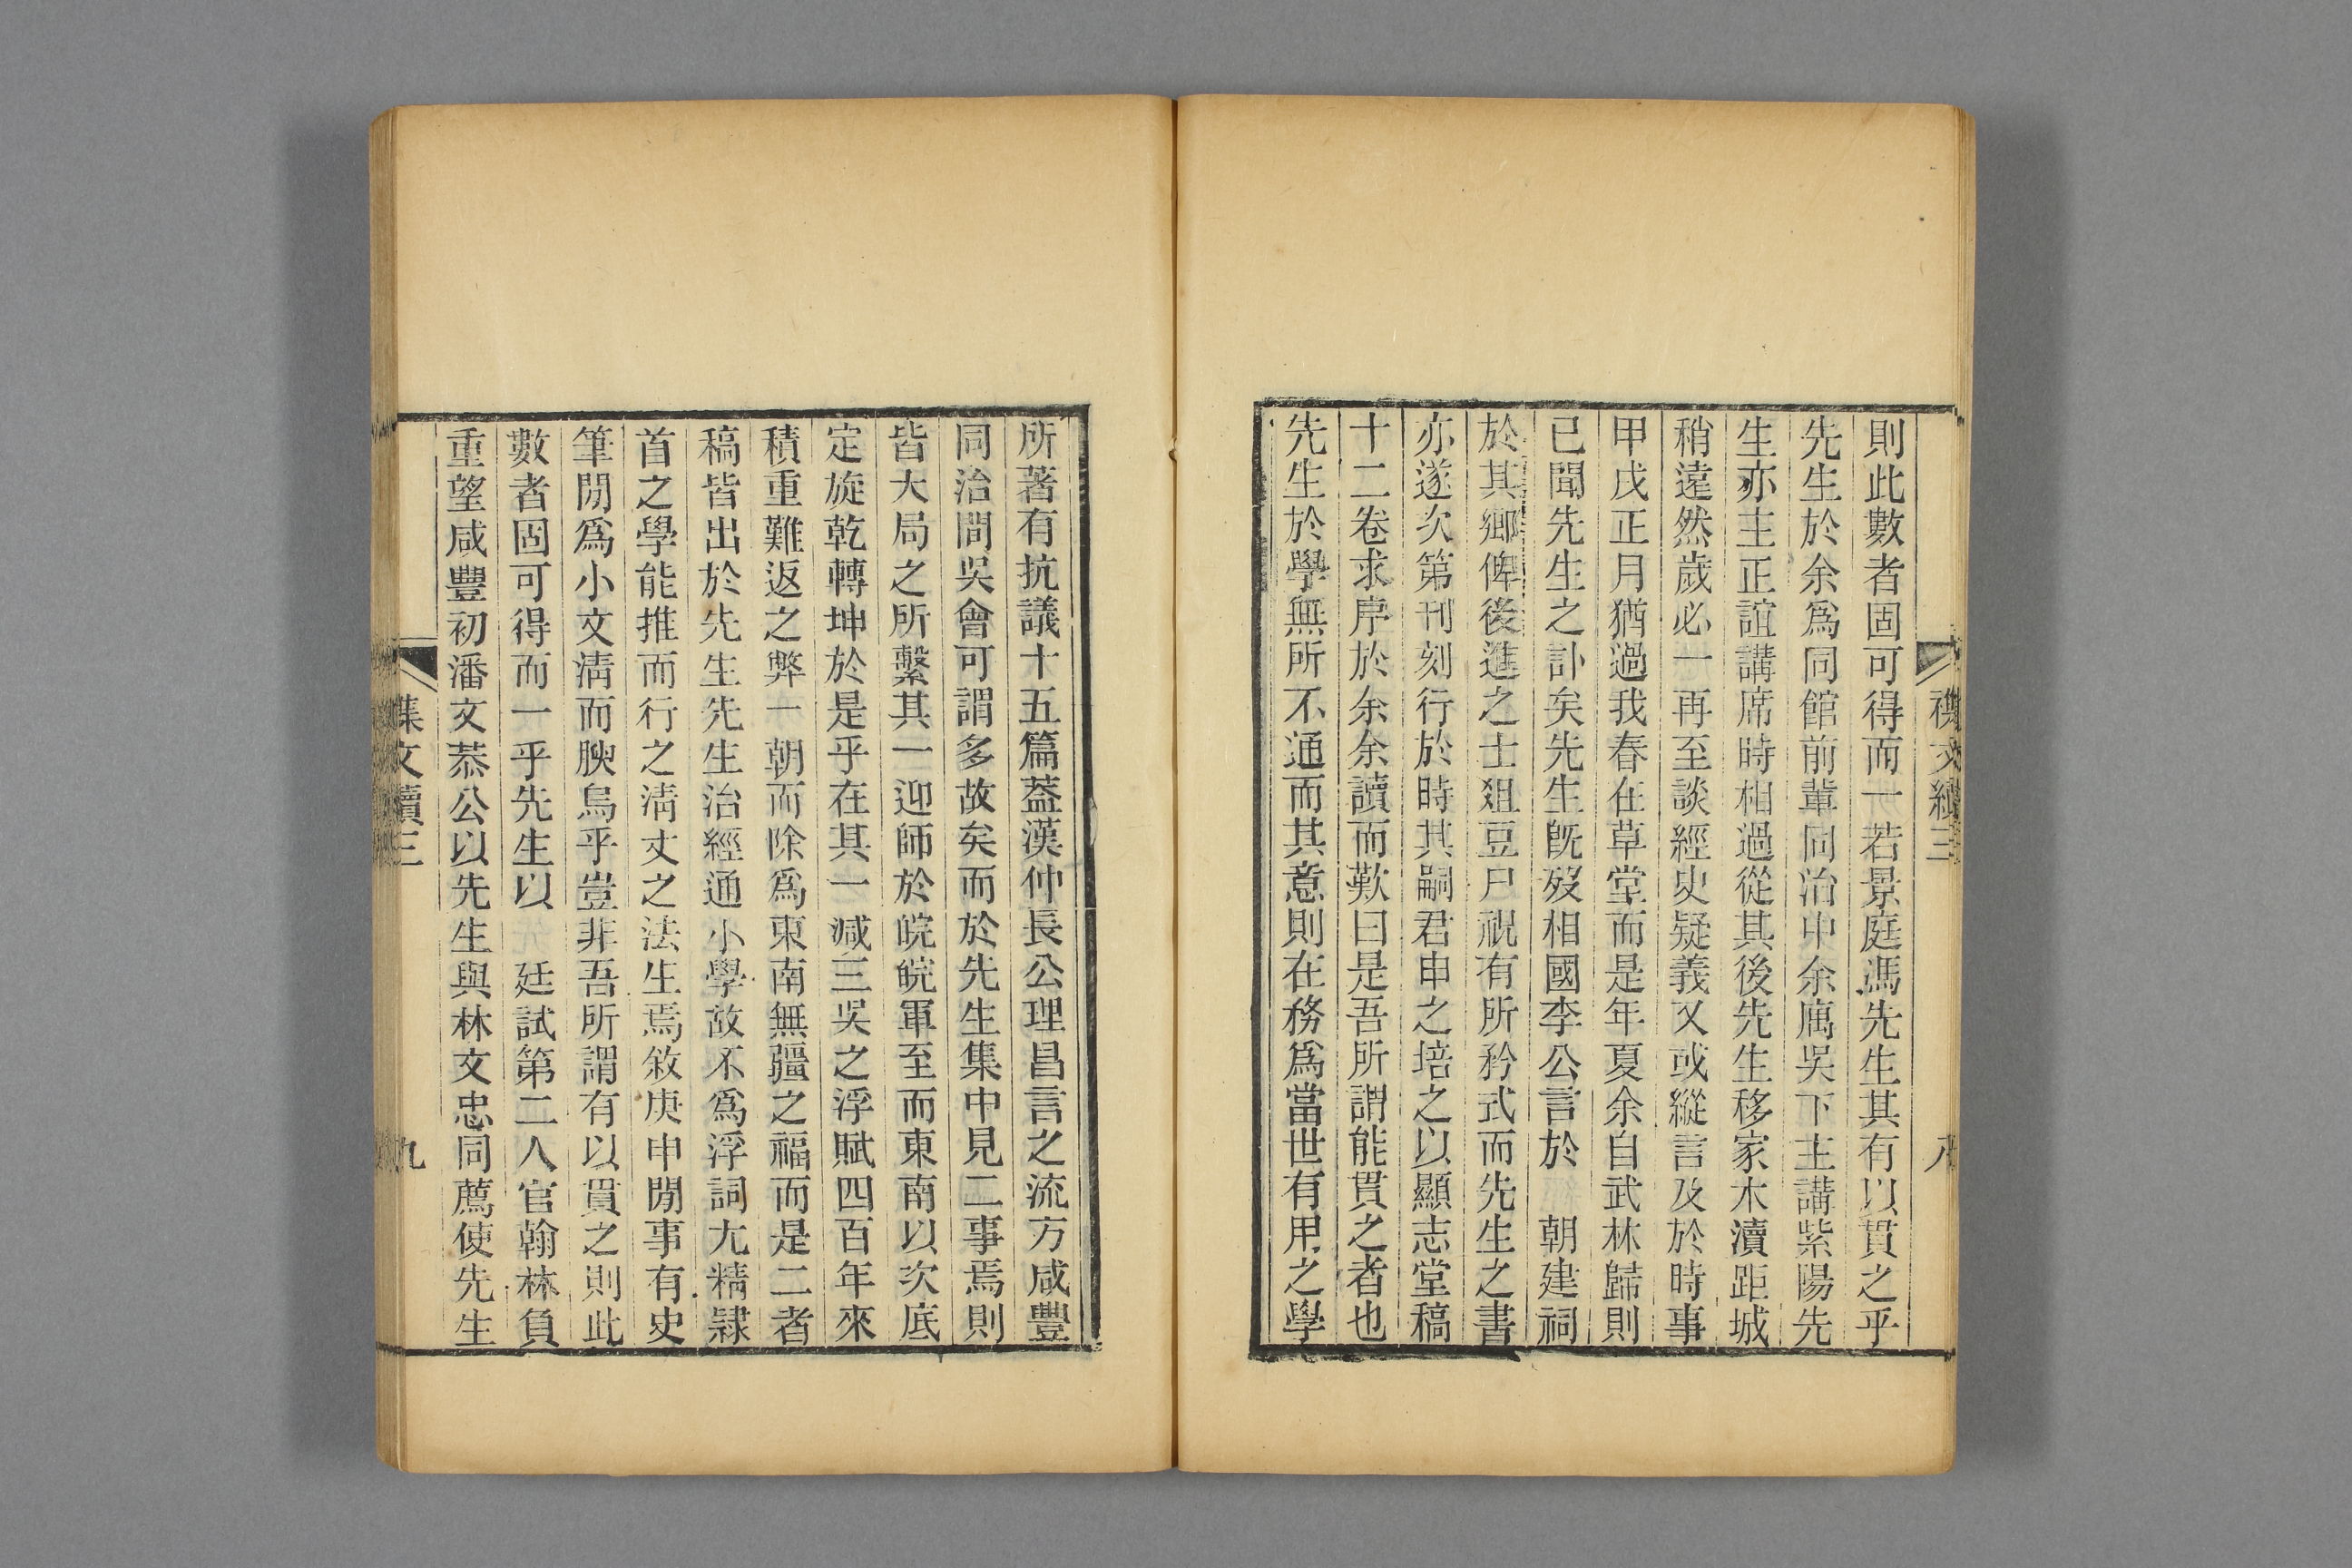 則此數者固可得而一若景庭馮先生其有以貫之乎
先生於余爲同館前輩同治中余寓吳下主講紫陽先
生亦主正誼講席時相過從其後先生移家木瀆距城
稍遠然歲必一再至談經史疑義又或縱言及於時事
甲戌正月猶過我春在草堂而是年夏余自武林歸則
已聞先生之訃矣先生旣歿相國李公言於 朝建祠
於其鄉俾後進之士俎豆尸祝有所矜式而先生之書
亦遂次第刊刻行於時其嗣君申之培之以顯志堂稿
十二卷求序於余余讀而歎曰是吾所謂能貫之者也
先生於學無所不通而其意則在務爲當世有用之學
所著有抗議十五篇葢漢仲長公理昌言之流方咸豐
同治間吳會可謂多故矣而於先生集中見二事焉則
皆大局之所繫其一迎師於皖皖軍至而東南以次底
定旋乾轉坤於是乎在其一減三吳之浮賦四百年來
積重難返之弊一朝而除爲東南無疆之福而是二者
稿皆出於先生先生治經通小學故不爲浮詞尤精隸
首之學能推而行之淸丈之法生焉敘庚申閒事有史
筆閒爲小文淸而腴烏乎豈非吾所謂有以貫之則此
數者固可得而一乎先生以 廷試第二人官翰林負
重望咸豐初潘文恭公以先生與林文忠同薦使先生
襍文續三
八
集文續三
九